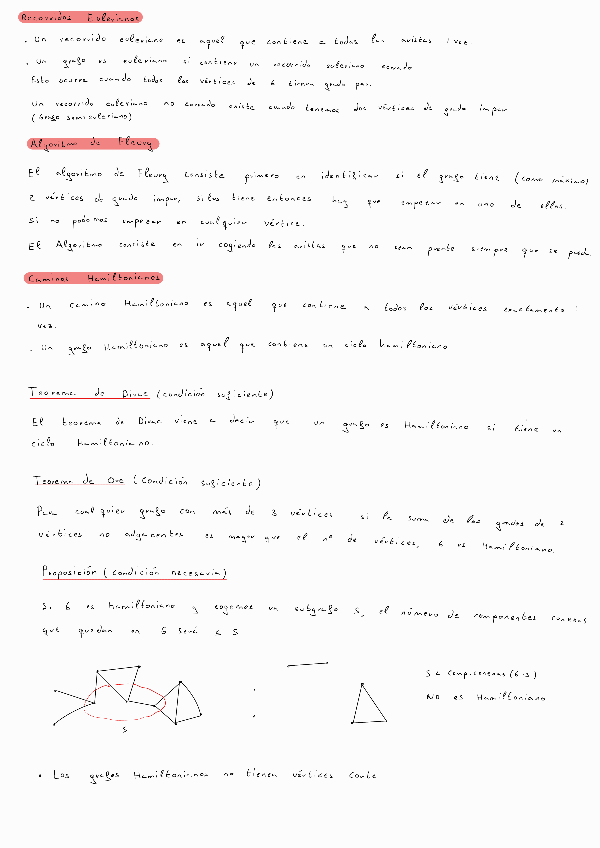 Recorridos Eulerianos
. Un recorrido euleriano es aquel que contiene a todas las aristas 1 vez
. Un grafo es euleriano si contiene un recorrido euleriano cerrado
Esto ocurre cuando todos los vértices de G tienen grado par.
Un recorrido euleriano no cerrado existe cuando tenemos dos vértices de grado impar
(Grafo semieuleriano)
Algoritmo de Fleury
El algoritmo de Fleury consiste primero en identificar si el grafo tiene (como máximo)
2 vértices de grado impar, si los tiene entonces hay que empezar en uno de ellos.
Si no podemos empezar en cualquier vértice.
El Algoritmo consiste en ir cogiendo las aristas que no sean puente siempre que se pueda.
Caminos Hamiltonianos
. Un camino Hamiltoniano es aquel que contiene a todos los vértices exactamente 1
vez.
. Un grafo Hamiltoniano es aquel que contiene un ciclo hamiltoniano
Teorema de Dirac (condición suficiente)
El teorema de Dirac viene a decir que un grafo es Hamiltoniano si tiene un
ciclo hamiltoniano.
Teorema de Ore (Condición suficiente)
Para cualquier grafo con más de 3 vértices si la suma de los grados de 2
vértices no adyacentes es mayor que el nº de vértices, G es Hamiltoniano.
Proposición (condición necesaria)
Si G es hamiltoniano y cogemos un subgrafo S, el número de componentes conexas
que quedan en S será ≤ S
S
S ≤ Comp.conexas (G-S)
No es Hamiltoniano
• Los grafos Hamiltonianos no tienen vértices corte